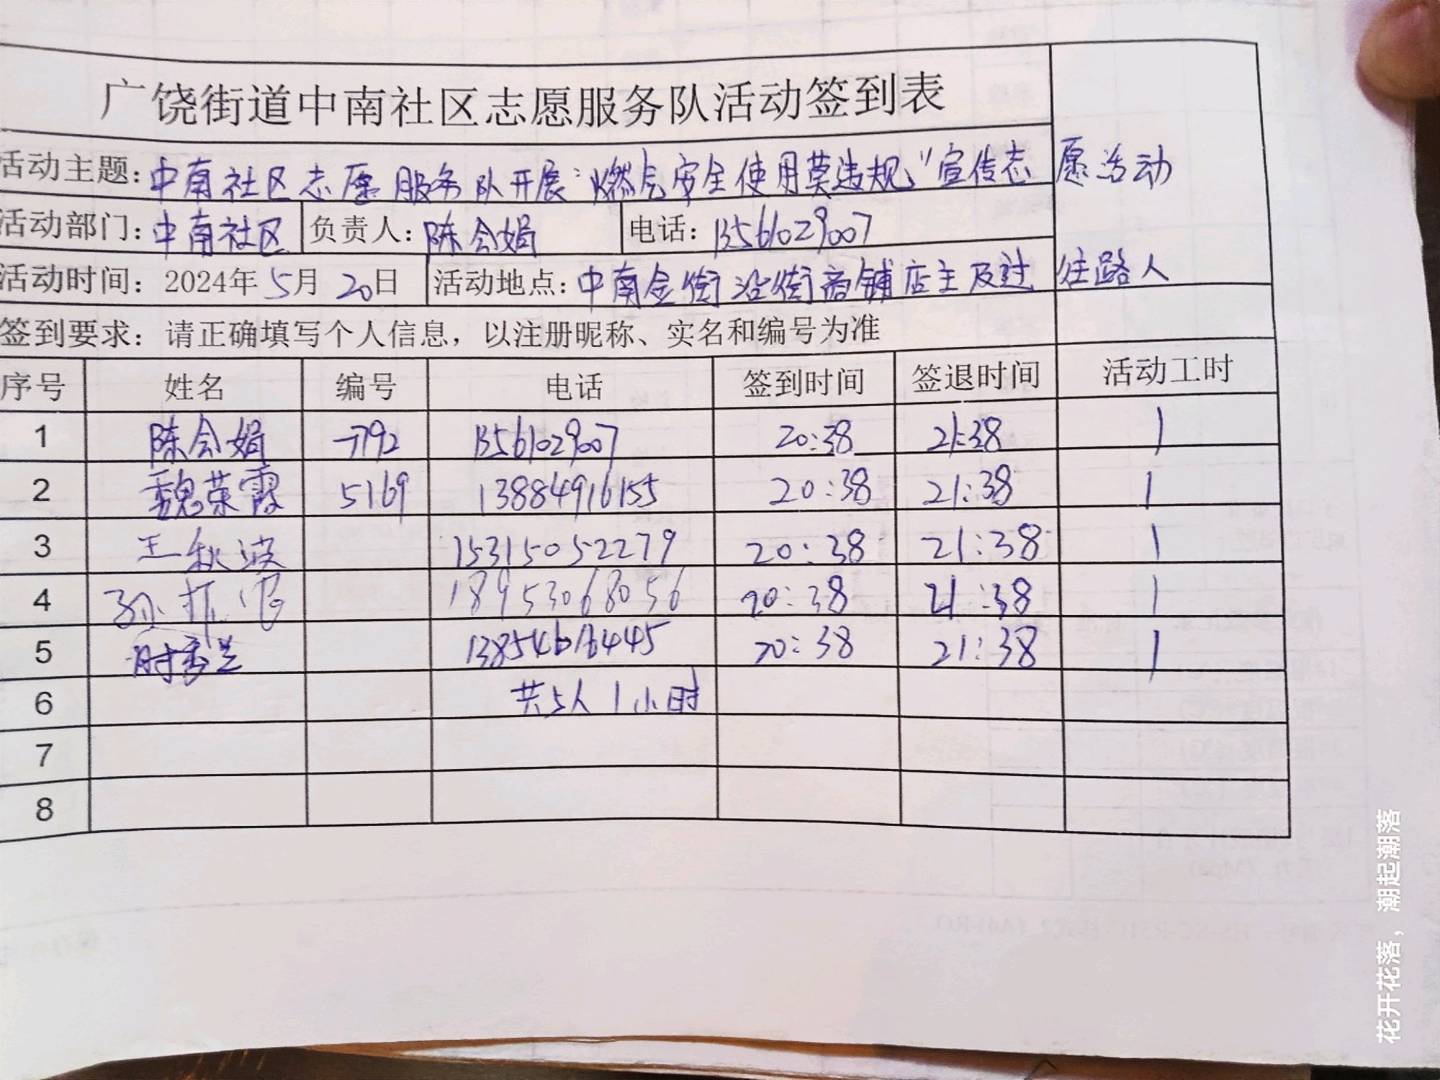 广饶街道中南社区志愿服务队活动签到表
活动主题：中南社区志愿服务队开展“燃气安全使用莫违规”宣传志愿活动
活动部门：中南社区 负责人：陈会娟 电话：13561029007
活动时间：2024年5月20日 活动地点：中南金街沿街商铺店主及过往路人
签到要求：请正确填写个人信息，以注册昵称、实名和编号为准
序号 姓名 编号 电话 签到时间 签退时间 活动工时
1 陈会娟 7792 13561029007 20:38 21:38 1
2 魏荣霞 5169 13884916155 20:38 21:38 1
3 王秋波 15315052279 20:38 21:38 1
4 孙 18953068056 20:38 21:38 1
5 时秀兰 20:38 21:38 1
6 共5人1小时
7
8
花开花落，潮起潮落